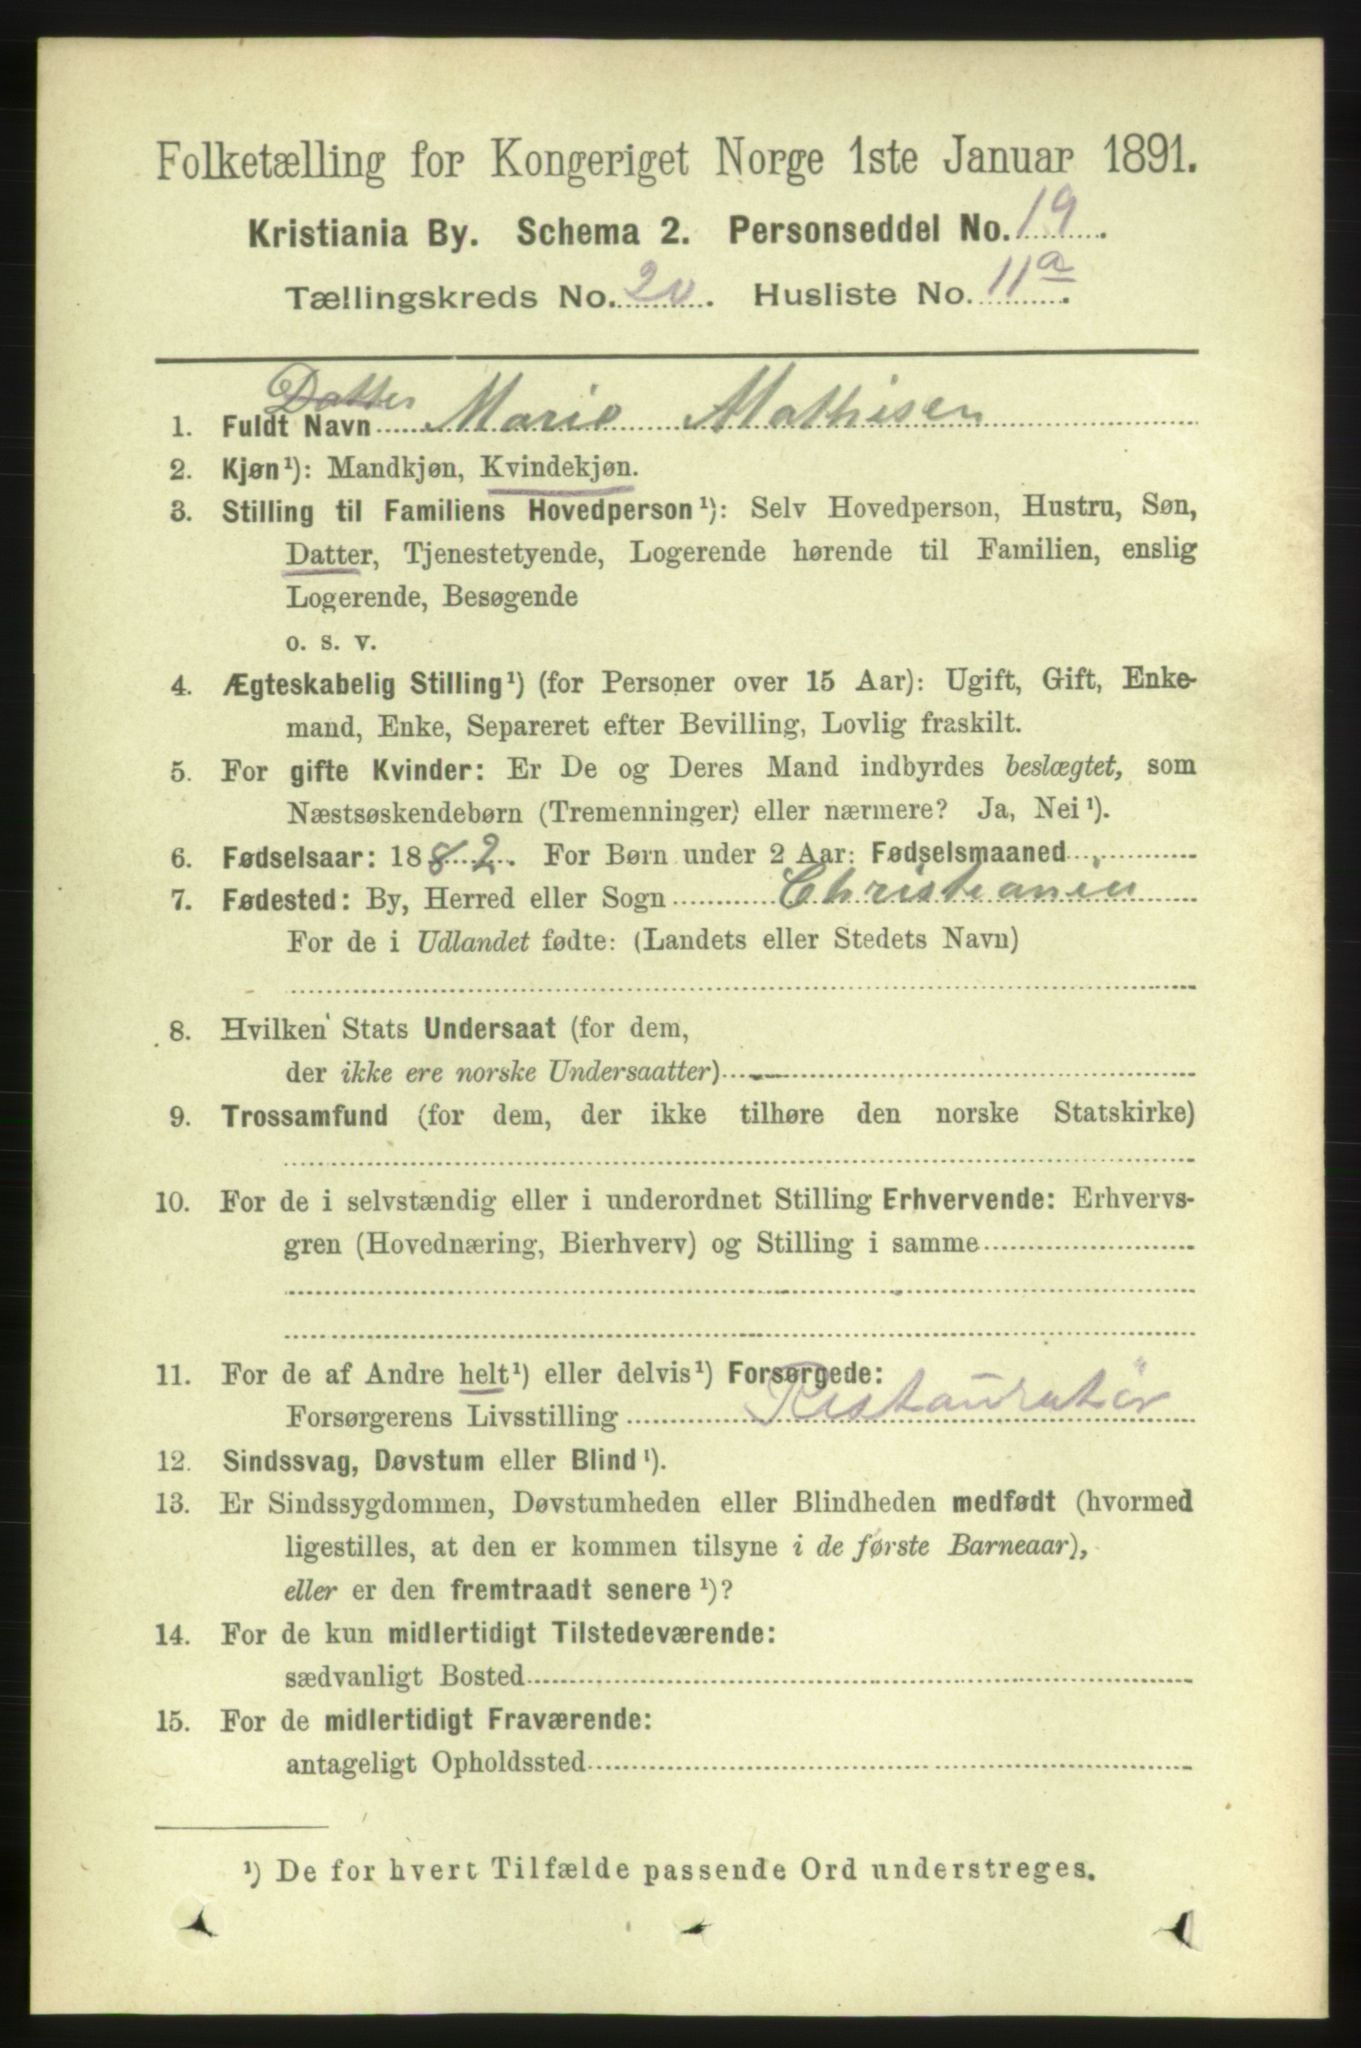 Folketælling for Kongeriget Norge 1ste Januar 1891.
Kristiania By. Schema 2. Personseddel No. 19.
Tællingskreds No. 20. Husliste No. 11a.
Datter
1. Fuldt Navn Marie Mathisen
2. Kjøn¹): Mandkjøn, Kvindekjøn.
3. Stilling til Familiens Hovedperson¹): Selv Hovedperson, Hustru, Søn,
Datter, Tjenestetyende, Logerende hørende til Familien, enslig
Logerende, Besøgende
o. s. v.
4. Ægteskabelig Stilling¹) (for Personer over 15 Aar): Ugift, Gift, Enke-
mand, Enke, Separeret efter Bevilling, Lovlig fraskilt.
5. For gifte Kvinder: Er De og Deres Mand indbyrdes beslægtet, som
Næstsøskendebørn (Tremenninger) eller nærmere? Ja, Nei¹).
6. Fødselsaar: 1882. For Børn under 2 Aar: Fødselsmaaned
7. Fødested: By, Herred eller Sogn Christiania
For de i Udlandet fødte: (Landets eller Stedets Navn)
8. Hvilken Stats Undersaat (for dem,
der ikke ere norske Undersaatter)
9. Trossamfund (for dem, der ikke tilhøre den norske Statskirke)
10. For de i selvstændig eller i underordnet Stilling Erhvervende: Erhvervs-
gren (Hovednæring, Bierhverv) og Stilling i samme
11. For de af Andre helt¹) eller delvis¹) Forsørgede:
Forsørgerens Livsstilling Restauratør
12. Sindssvag, Døvstum eller Blind¹).
13. Er Sindssygdommen, Døvstumheden eller Blindheden medfødt (hvormed
ligestilles, at den er kommen tilsyne i de første Barneaar),
eller er den fremtraadt senere¹)?
14. For de kun midlertidigt Tilstedeværende:
sædvanligt Bosted
15. For de midlertidigt Fraværende:
antageligt Opholdssted
¹) De for hvert Tilfælde passende Ord understreges.